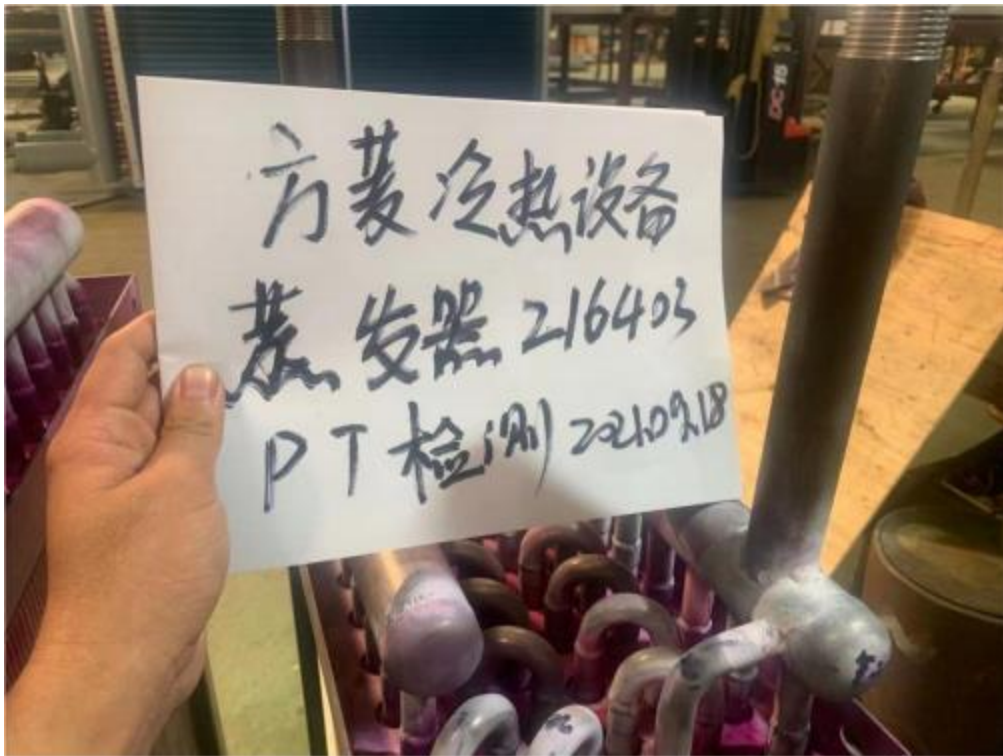 方菱冷热设备
蒸发器 216403
PT 检测 2021.09.18
DC-15